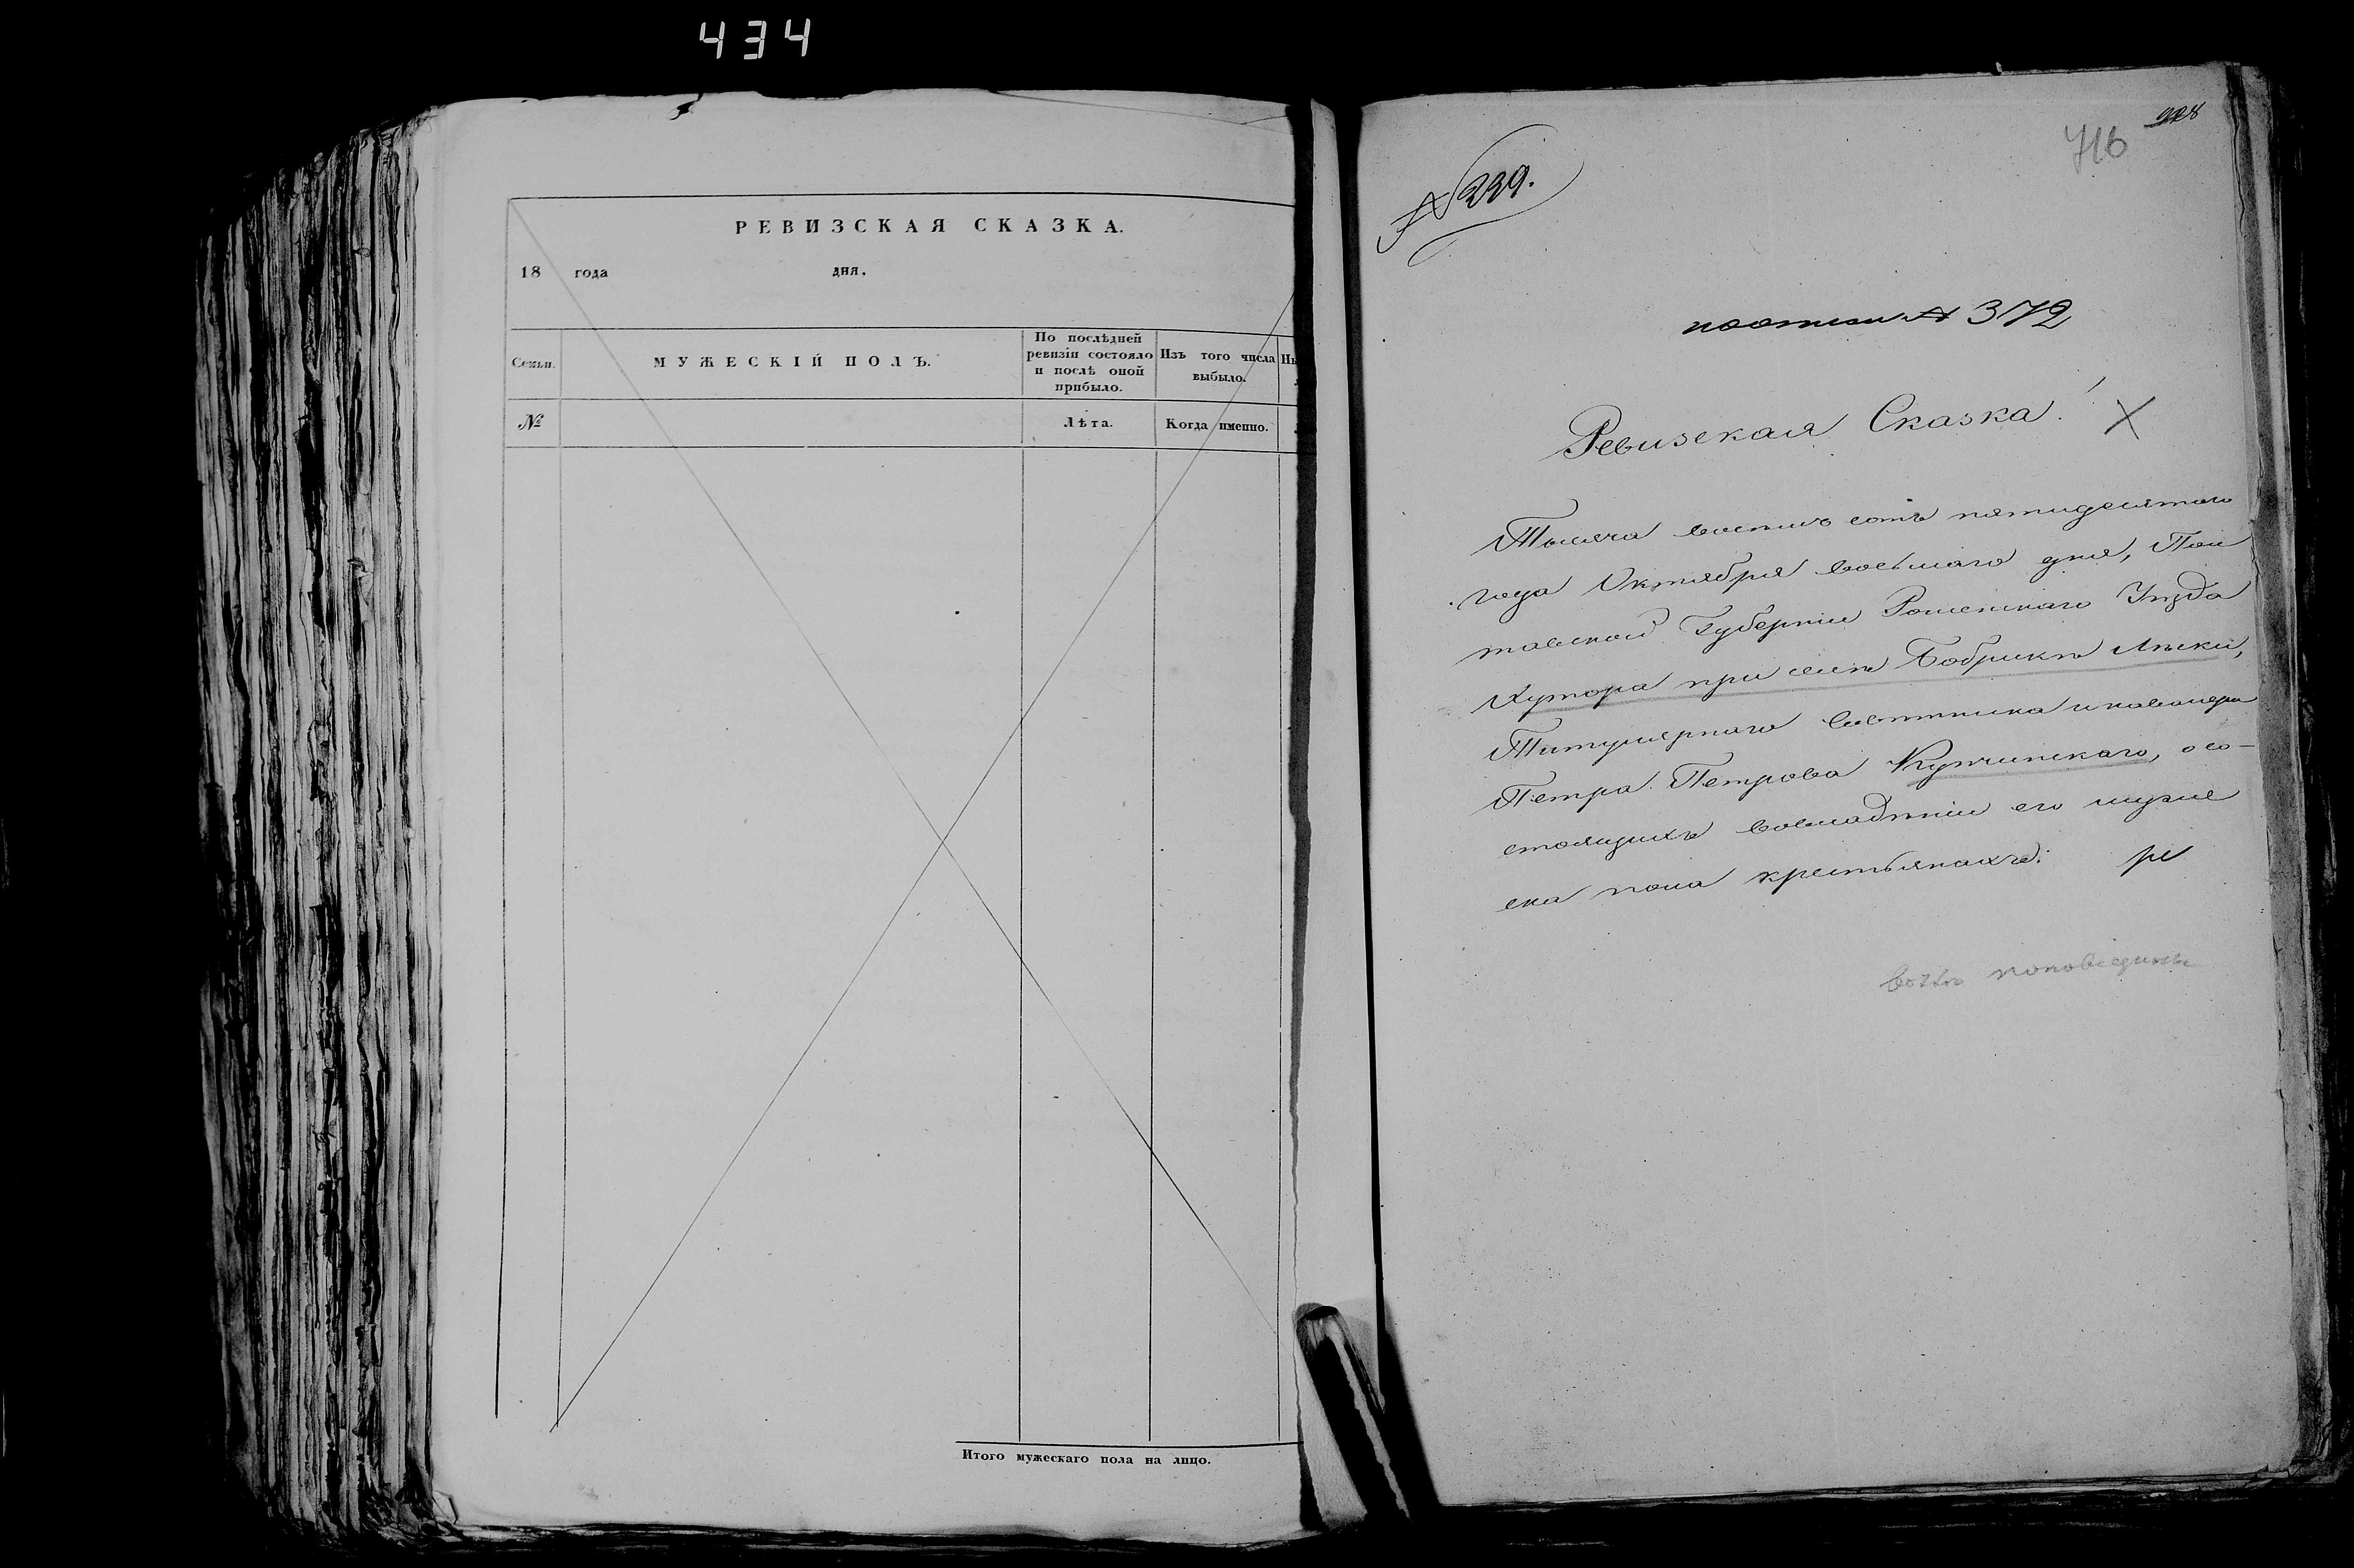 434
РЕВИЗСКАЯ СКАЗКА.
18 года дня.
Семьи.
МУЖЕСКІЙ ПОЛЪ.
По послѣдней ревизіи состояло и послѣ оной прибыло.
Изъ того числа выбыло.
№
Лѣта.
Когда именно.
Итого мужескаго пола на лицо.
716
№ 239.
№ 372
Ревизская Сказка!
Тысяча восемь сотъ пятидесятаго
года Октября восьмаго дня, Пол
тавской Губерніи Роменскаго Уѣзда
Хутора при селѣ Бобрикѣ Лѣски,
Титулярнаго Совѣтника и кавалера
Петра Петрова Купчинскаго, о со-
стоящихъ во владѣніи его муже
ска пола крестьянахъ: